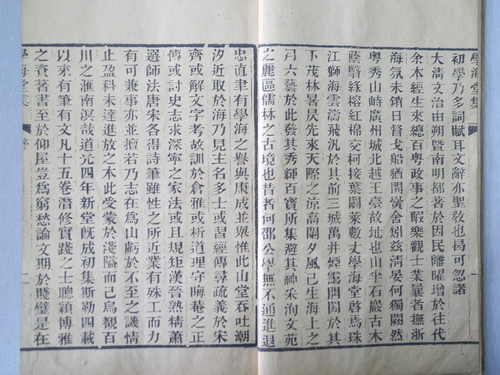 學海堂集
初學乃多詞賦耳文辭亦聖敎也曷可忽諸
大清文治由朔曁南明都著於因民離曜增於往代
余本經生來總百粤政事之暇樂觀士業曩者撫浙
海氛未銷日督戈船猶開黌舍矧茲清晏何獨闕然
粤秀山峙廣州城北越王臺故地也山半石巖古木
蔭翳綠榕紅棉交柯接葉闢萊數丈學海堂啓焉珠
江獅海雲濤飛汎於其前三城萬井煙靄開闔於其
下茂林暑昃先來天際之涼高闌夕風已生海上之
月六藝於此發其秀輝百寶所集避其神采洵文苑
之麗區儒林之古境也昔者何邵公學無不通進退
忠直聿有學海之譽與康成並舉惟此山堂吞吐潮
汐近取於海乃見主名多士或習經傳尋疏義於宋
齊或解文字考故訓於倉雅或析道理守晦庵之正
傳或討史志求深寧之家法或且規矩漢晉熟精蕭
選師法唐宋各得詩筆雖性之所近業有殊工而力
有可兼事亦並擅若乃志在爲山虧於不至之譏情
止盈科未達進放之本此受蒙於淺隘而已烏覩百
川之滙南溟哉道光四年新堂旣成初集斯勒四載
以來有筆有文凡十五卷潛修實踐之士聰穎博雅
之資著書至於仰屋豈爲窮愁論文期於賤璧是在
學海堂集 序 二